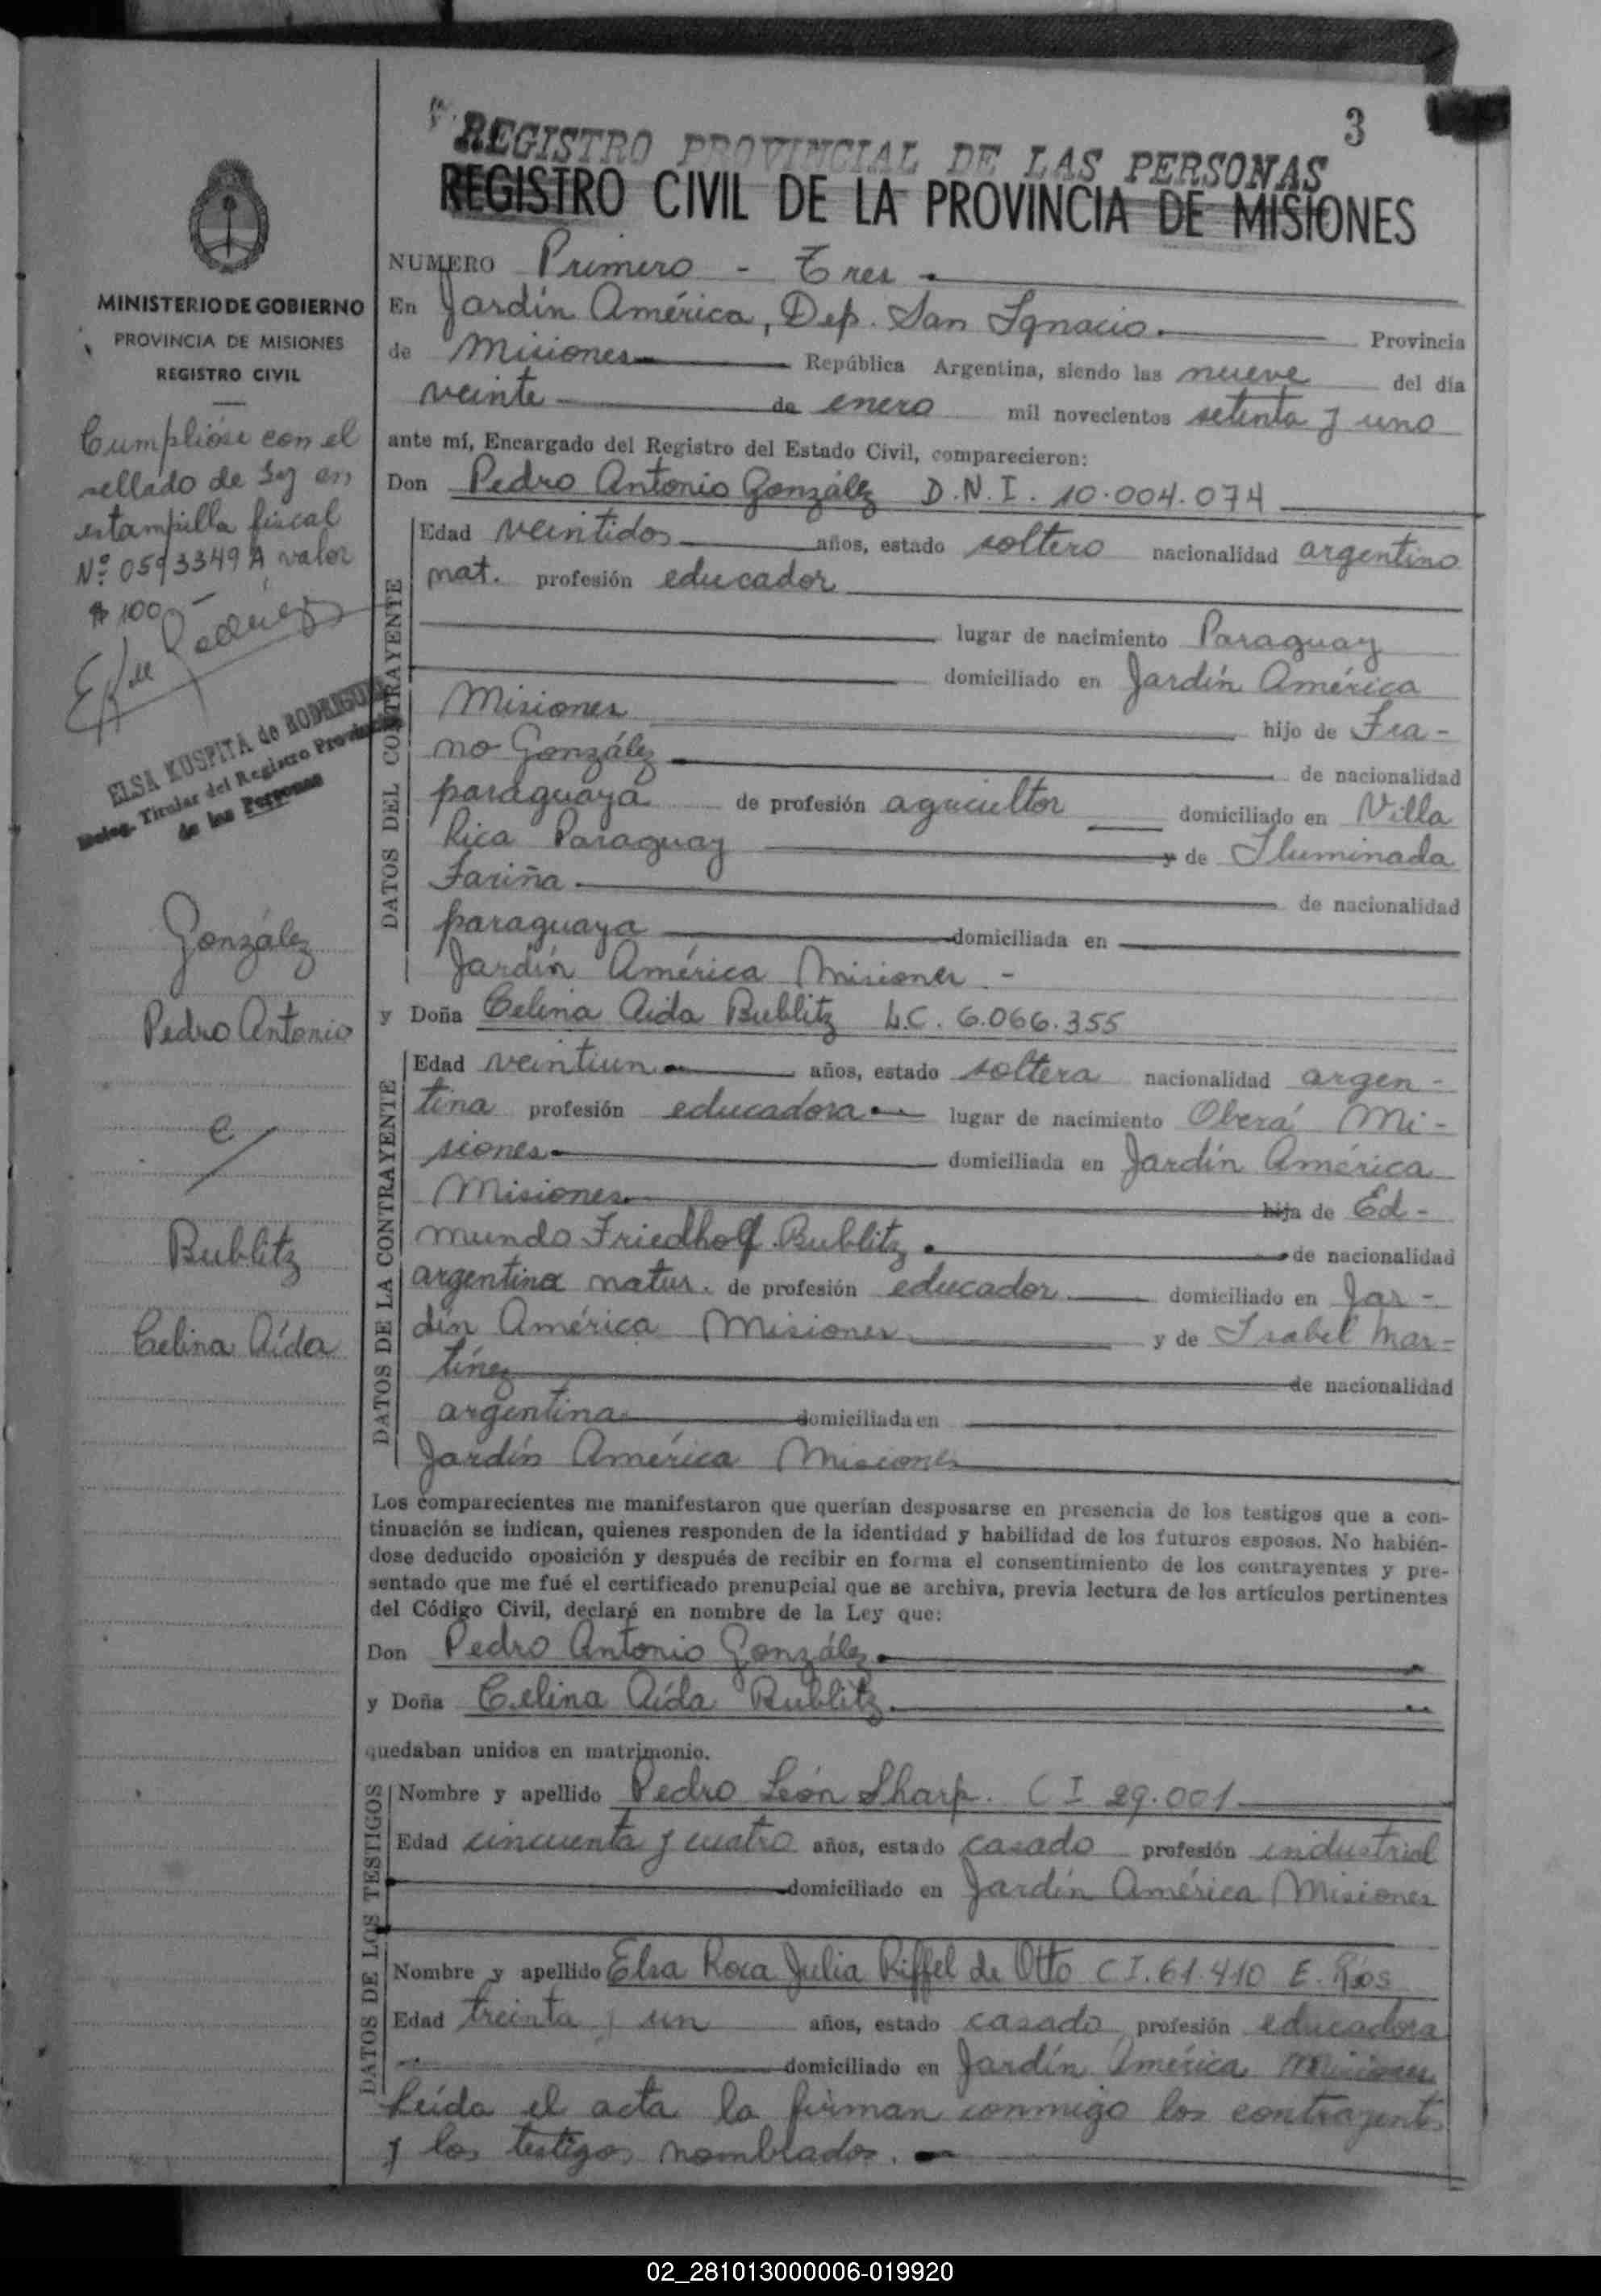 3
REGISTRO PROVINCIAL DE LAS PERSONAS
REGISTRO CIVIL DE LA PROVINCIA DE MISIONES
MINISTERIO DE GOBIERNO
PROVINCIA DE MISIONES
REGISTRO CIVIL
Cumplióse con el
sellado de Ley en
estampilla fiscal
Nº 0593349 A valor
$ 100
ELSA KUSPITA de RODRIGUEZ
Deleg. Titular del Registro Provincial
de las Personas
González
Pedro Antonio
e
Bublitz
Celina Aída
NUMERO Primero - Tres
En Jardín América, Dep. San Ignacio. Provincia
de Misiones República Argentina, siendo las nueve del día
veinte de enero mil novecientos setenta y uno
ante mí, Encargado del Registro del Estado Civil, comparecieron:
Don Pedro Antonio González D.N.I. 10.004.074
DATOS DEL CONTRAYENTE
Edad veintidos años, estado soltero nacionalidad argentino
nat. profesión educador
lugar de nacimiento Paraguay
domiciliado en Jardín América
Misiones hijo de Fra-
no González de nacionalidad
paraguaya de profesión agricultor domiciliado en Villa
Rica Paraguay y de Iluminada
Fariña de nacionalidad
paraguaya domiciliada en
Jardín América Misiones -
y Doña Celina Aida Bublitz L.C. 6.066.355
DATOS DE LA CONTRAYENTE
Edad veintiun años, estado soltera nacionalidad argen-
tina profesión educadora lugar de nacimiento Oberá Mi-
siones domiciliada en Jardín América
Misiones hija de Ed-
mundo Friedholf Bublitz de nacionalidad
argentina natur. de profesión educador domiciliado en Jar-
dín América Misiones y de Isabel Mar-
tínez de nacionalidad
argentina domiciliada en
Jardín América Misiones
Los comparecientes me manifestaron que querían desposarse en presencia de los testigos que a con-
tinuación se indican, quienes responden de la identidad y habilidad de los futuros esposos. No habién-
dose deducido oposición y después de recibir en forma el consentimiento de los contrayentes y pre-
sentado que me fué el certificado prenupcial que se archiva, previa lectura de los artículos pertinentes
del Código Civil, declaré en nombre de la Ley que:
Don Pedro Antonio González
y Doña Celina Aída Bublitz
quedaban unidos en matrimonio.
DATOS DE LOS TESTIGOS
Nombre y apellido Pedro León Sharp. C I 29.001
Edad cincuenta y cuatro años, estado casado profesión industrial
domiciliado en Jardín América Misiones
Nombre y apellido Elsa Rosa Julia Riffel de Otto C I. 61.410 E. Ríos
Edad treinta y un años, estado casada profesión educadora
domiciliado en Jardín América Misiones
Leída el acta la firman conmigo los contrayentes
y los testigos nombrados.
02_281013000006-019920